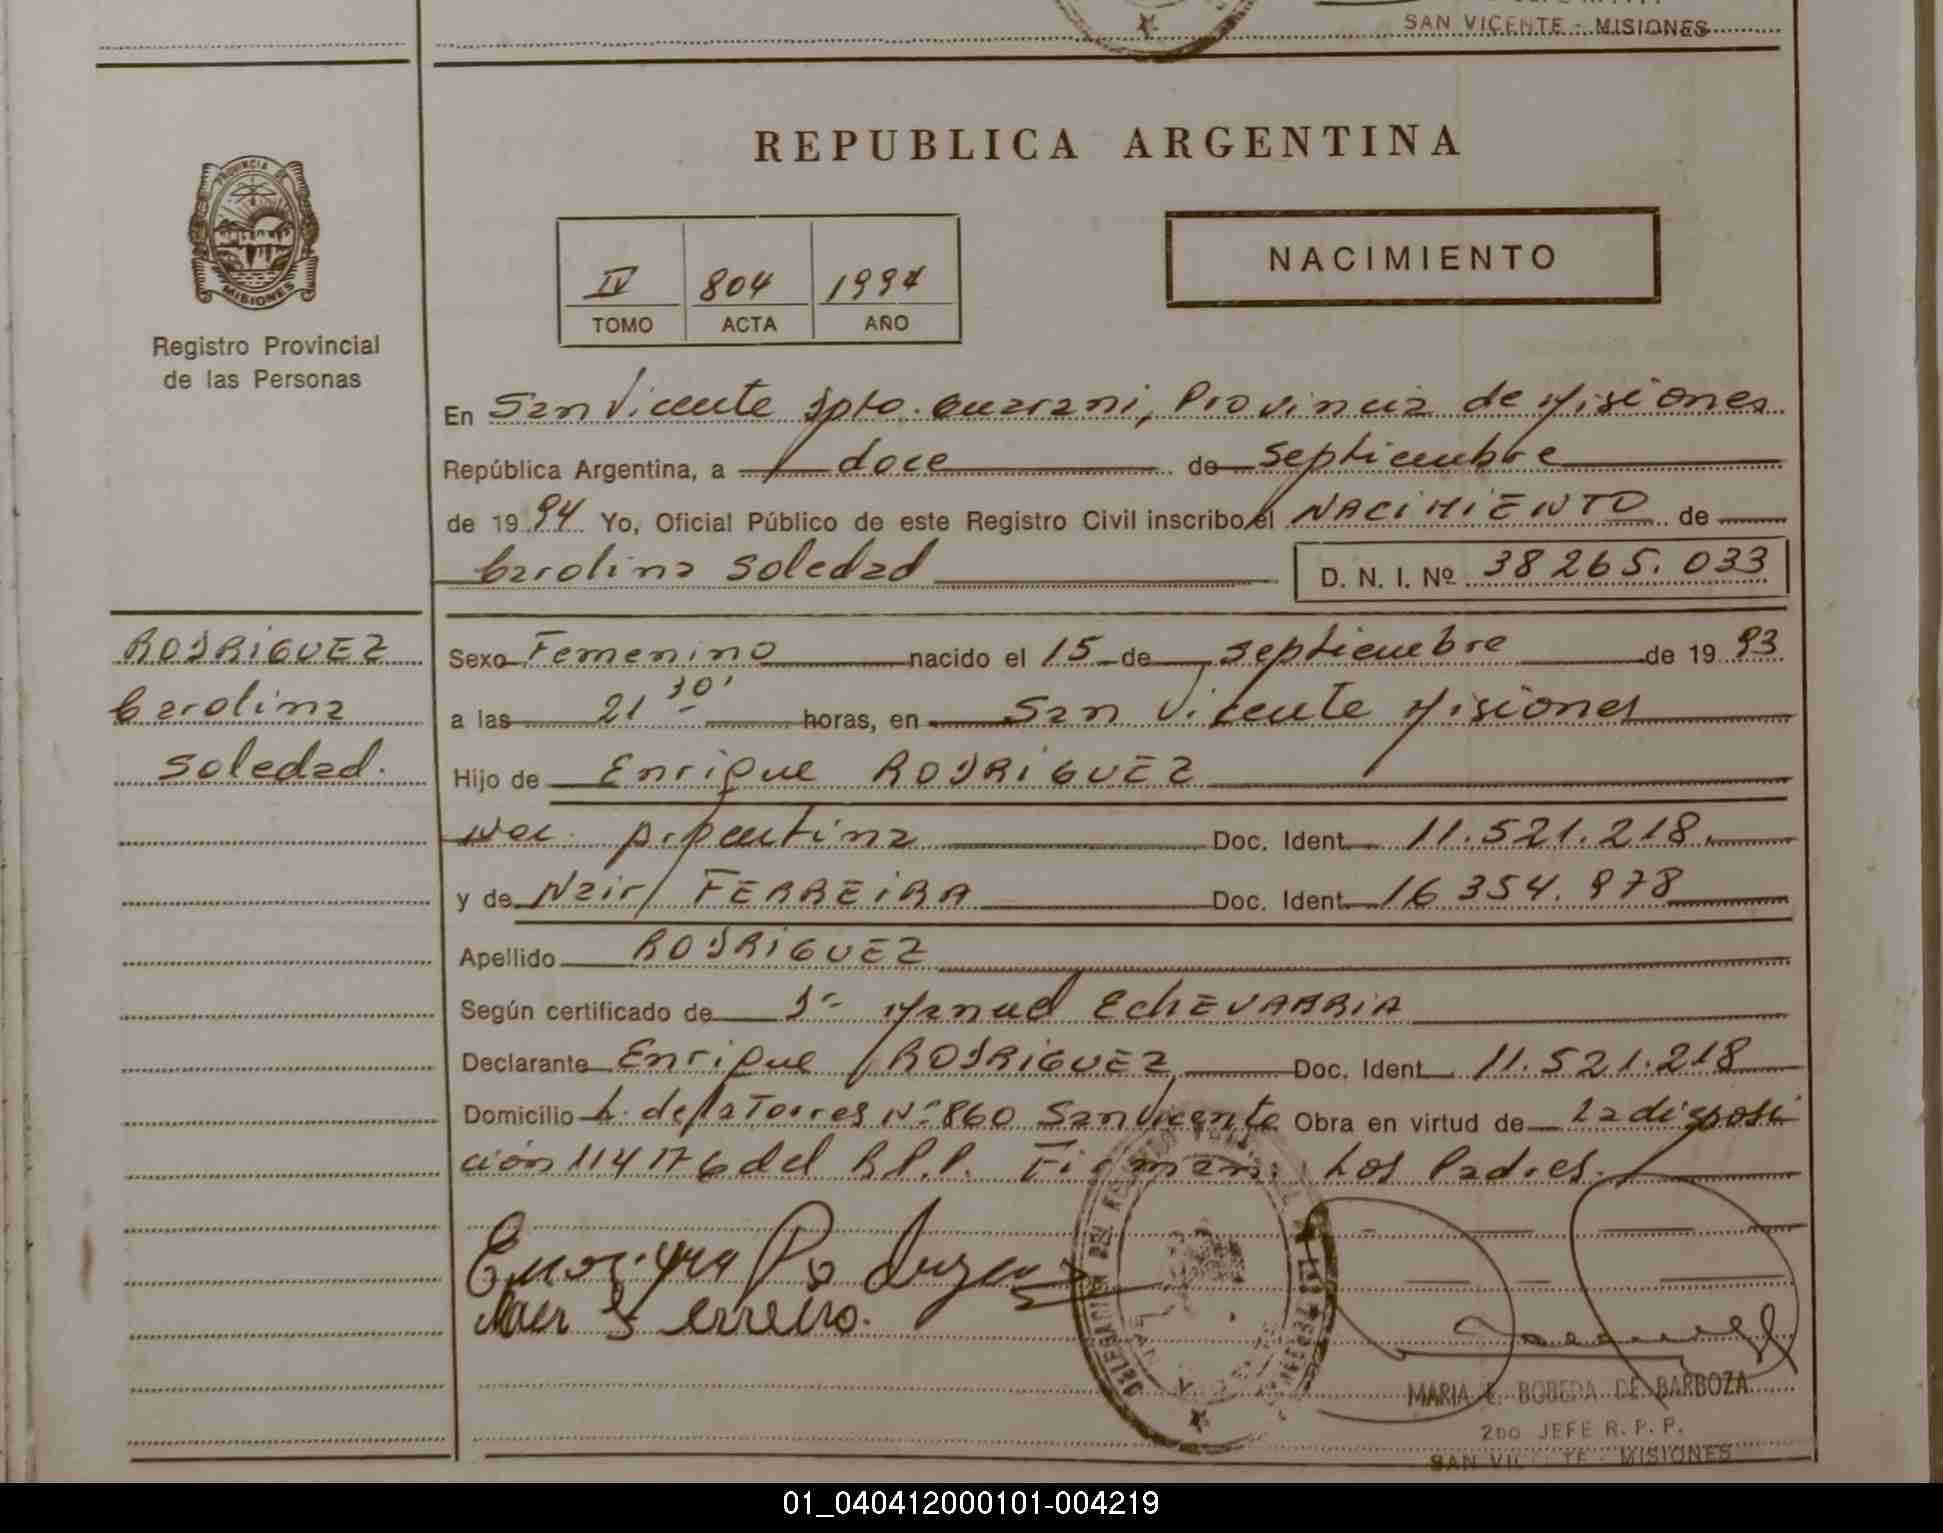 SAN VICENTE - MISIONES
REPUBLICA ARGENTINA
PROVINCIA DE
MISIONES
Registro Provincial
de las Personas
IV 804 1994
TOMO ACTA AÑO
NACIMIENTO
En San Vicente Dpto. Guarani, Provincia de Misiones
República Argentina, a doce de septiembre
de 1994 Yo, Oficial Público de este Registro Civil inscribo el NACIMIENTO de
Carolina Soledad D. N. I. Nº 38265.033
RODRIGUEZ
Carolina
Soledad.
Sexo Femenino nacido el 15 de septiembre de 1993
a las 21 30' horas, en San Vicente Misiones
Hijo de Enrique RODRIGUEZ
Nac. Argentina Doc. Ident. 11.521.218.
y de Nair FERREIRA Doc. Ident. 16 354.978
Apellido RODRIGUEZ
Según certificado de Dr Manuel EchEVARRIA
Declarante Enrique RODRIGUEZ Doc. Ident. 11.521.218
Domicilio L. de la Torres Nº 860 San Vicente Obra en virtud de la disposi
ción 114 176 del R.P.P. Firman: Los Padres.
MARIA E. BOBEDA DE BARBOZA
2DO JEFE R. P. P.
SAN VICENTE - MISIONES
01_040412000101-004219